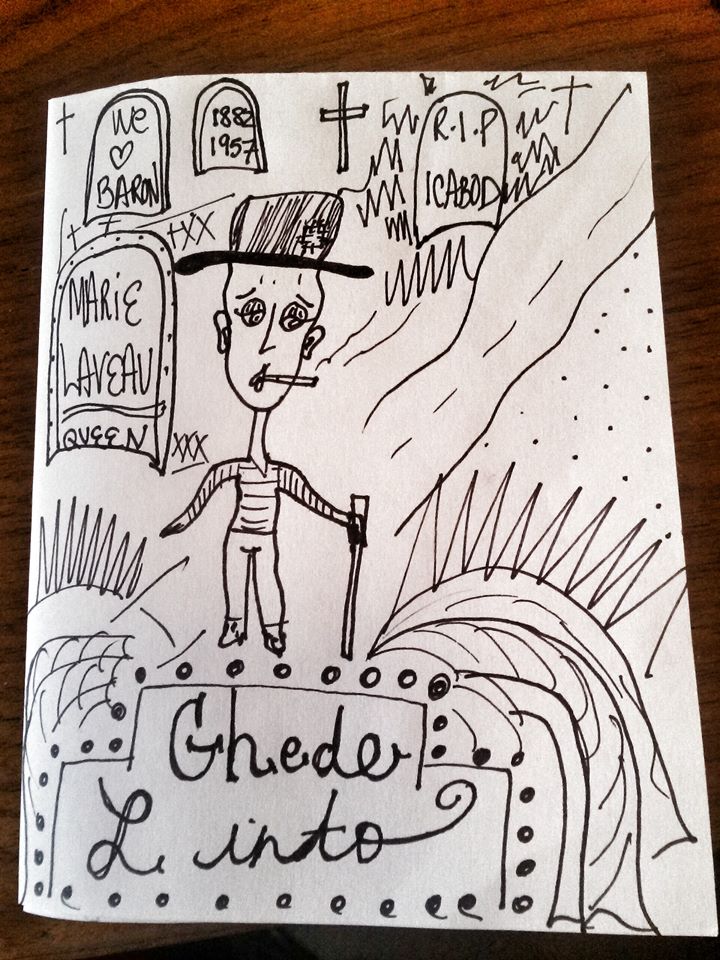 We
♡
BARON
1882
1957
R.I.P
ICABOD
XX
MARIE
LAVEAU
QUEEN
XXX
Ghede
Linto